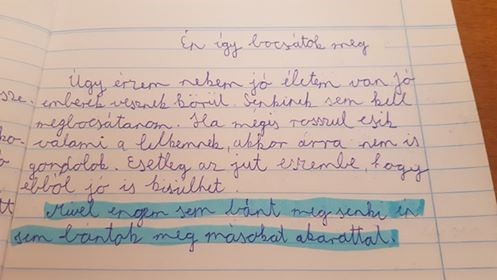 Én így bocsátok meg
Úgy érzem nekem jó életem van jó
emberek vesznek körül. Senkinek sem kell
megbocsátanom. Ha mégis rosszul esik
valami a lelkemnek, akkor árra nem is
gondolok. Esetleg az jut eszembe, hogy
ebből jó is kisülhet.
Mivel engem sem bánt meg senki én
sem bántok meg másokat akarattal.